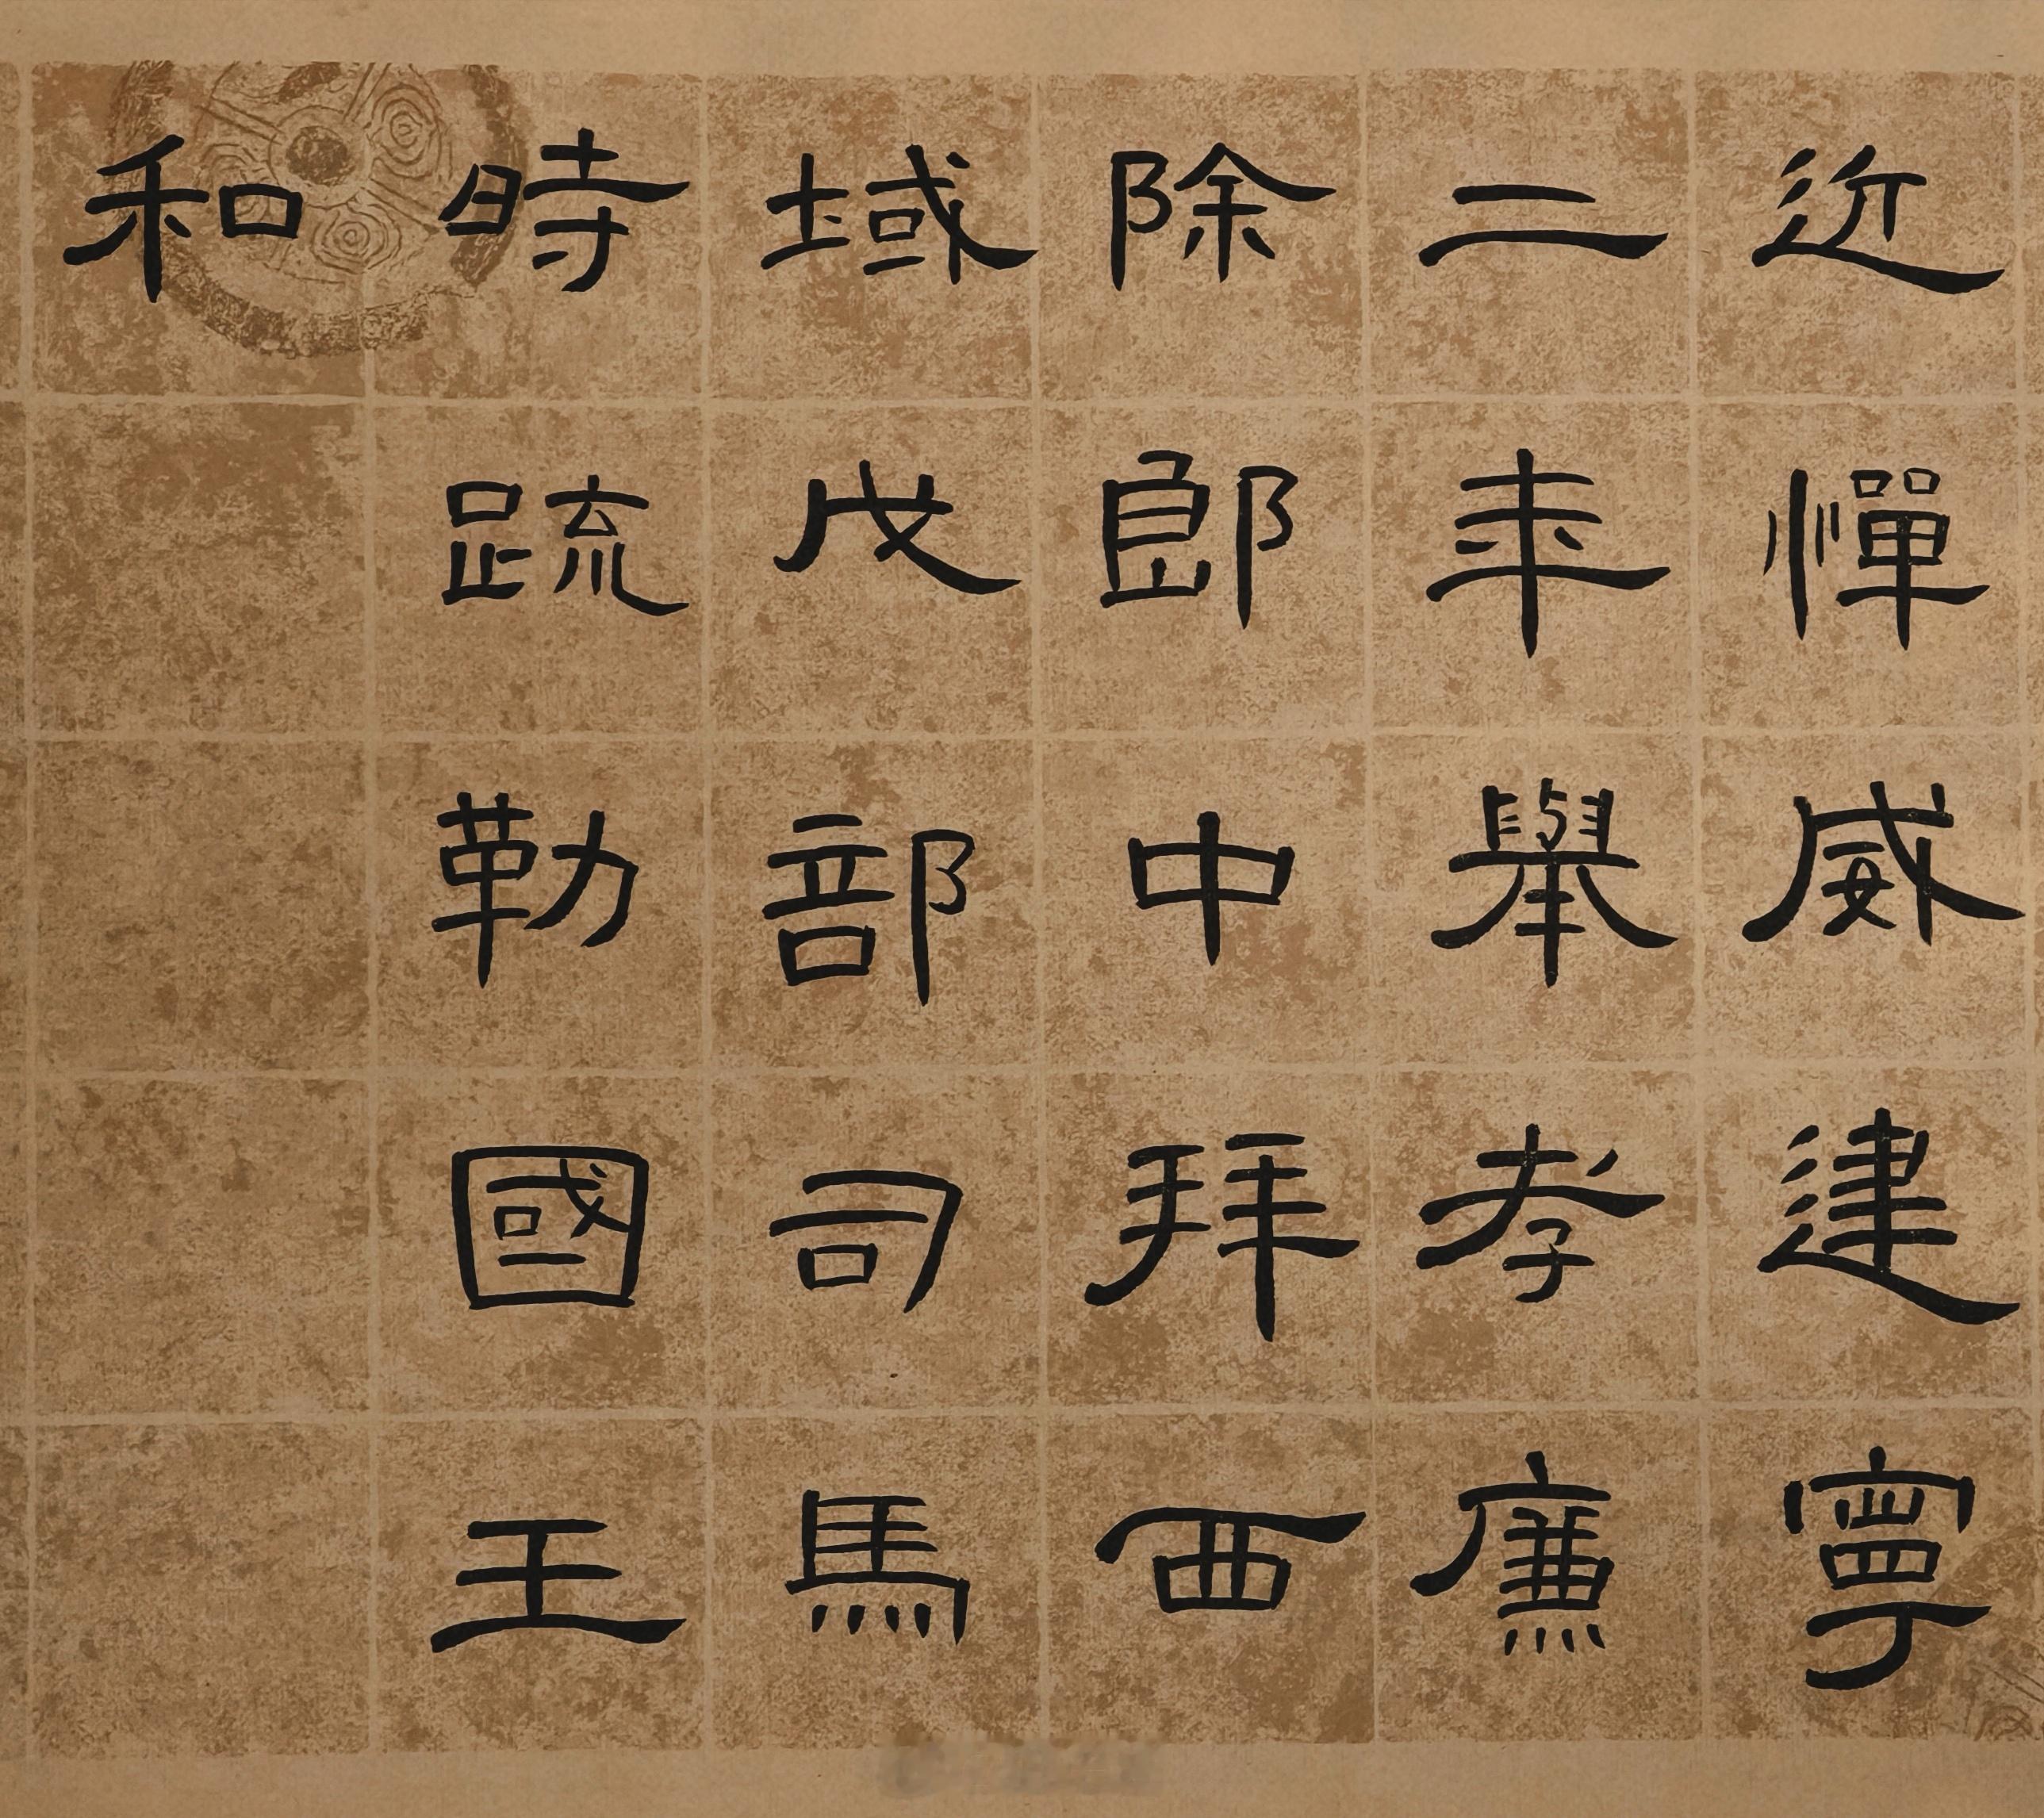 近憚威建寧
二年舉孝廉
除郎中拜西
域戊部司馬
時疏勒國王
和